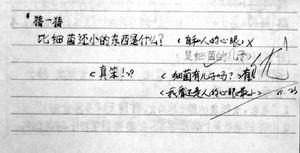 猜一猜
比细菌还小的东西是什么？ （自私人的心眼）X
是细菌的儿子
（真笨！）？ （细菌有儿子吗？有）
（我看还是人的心眼最小）